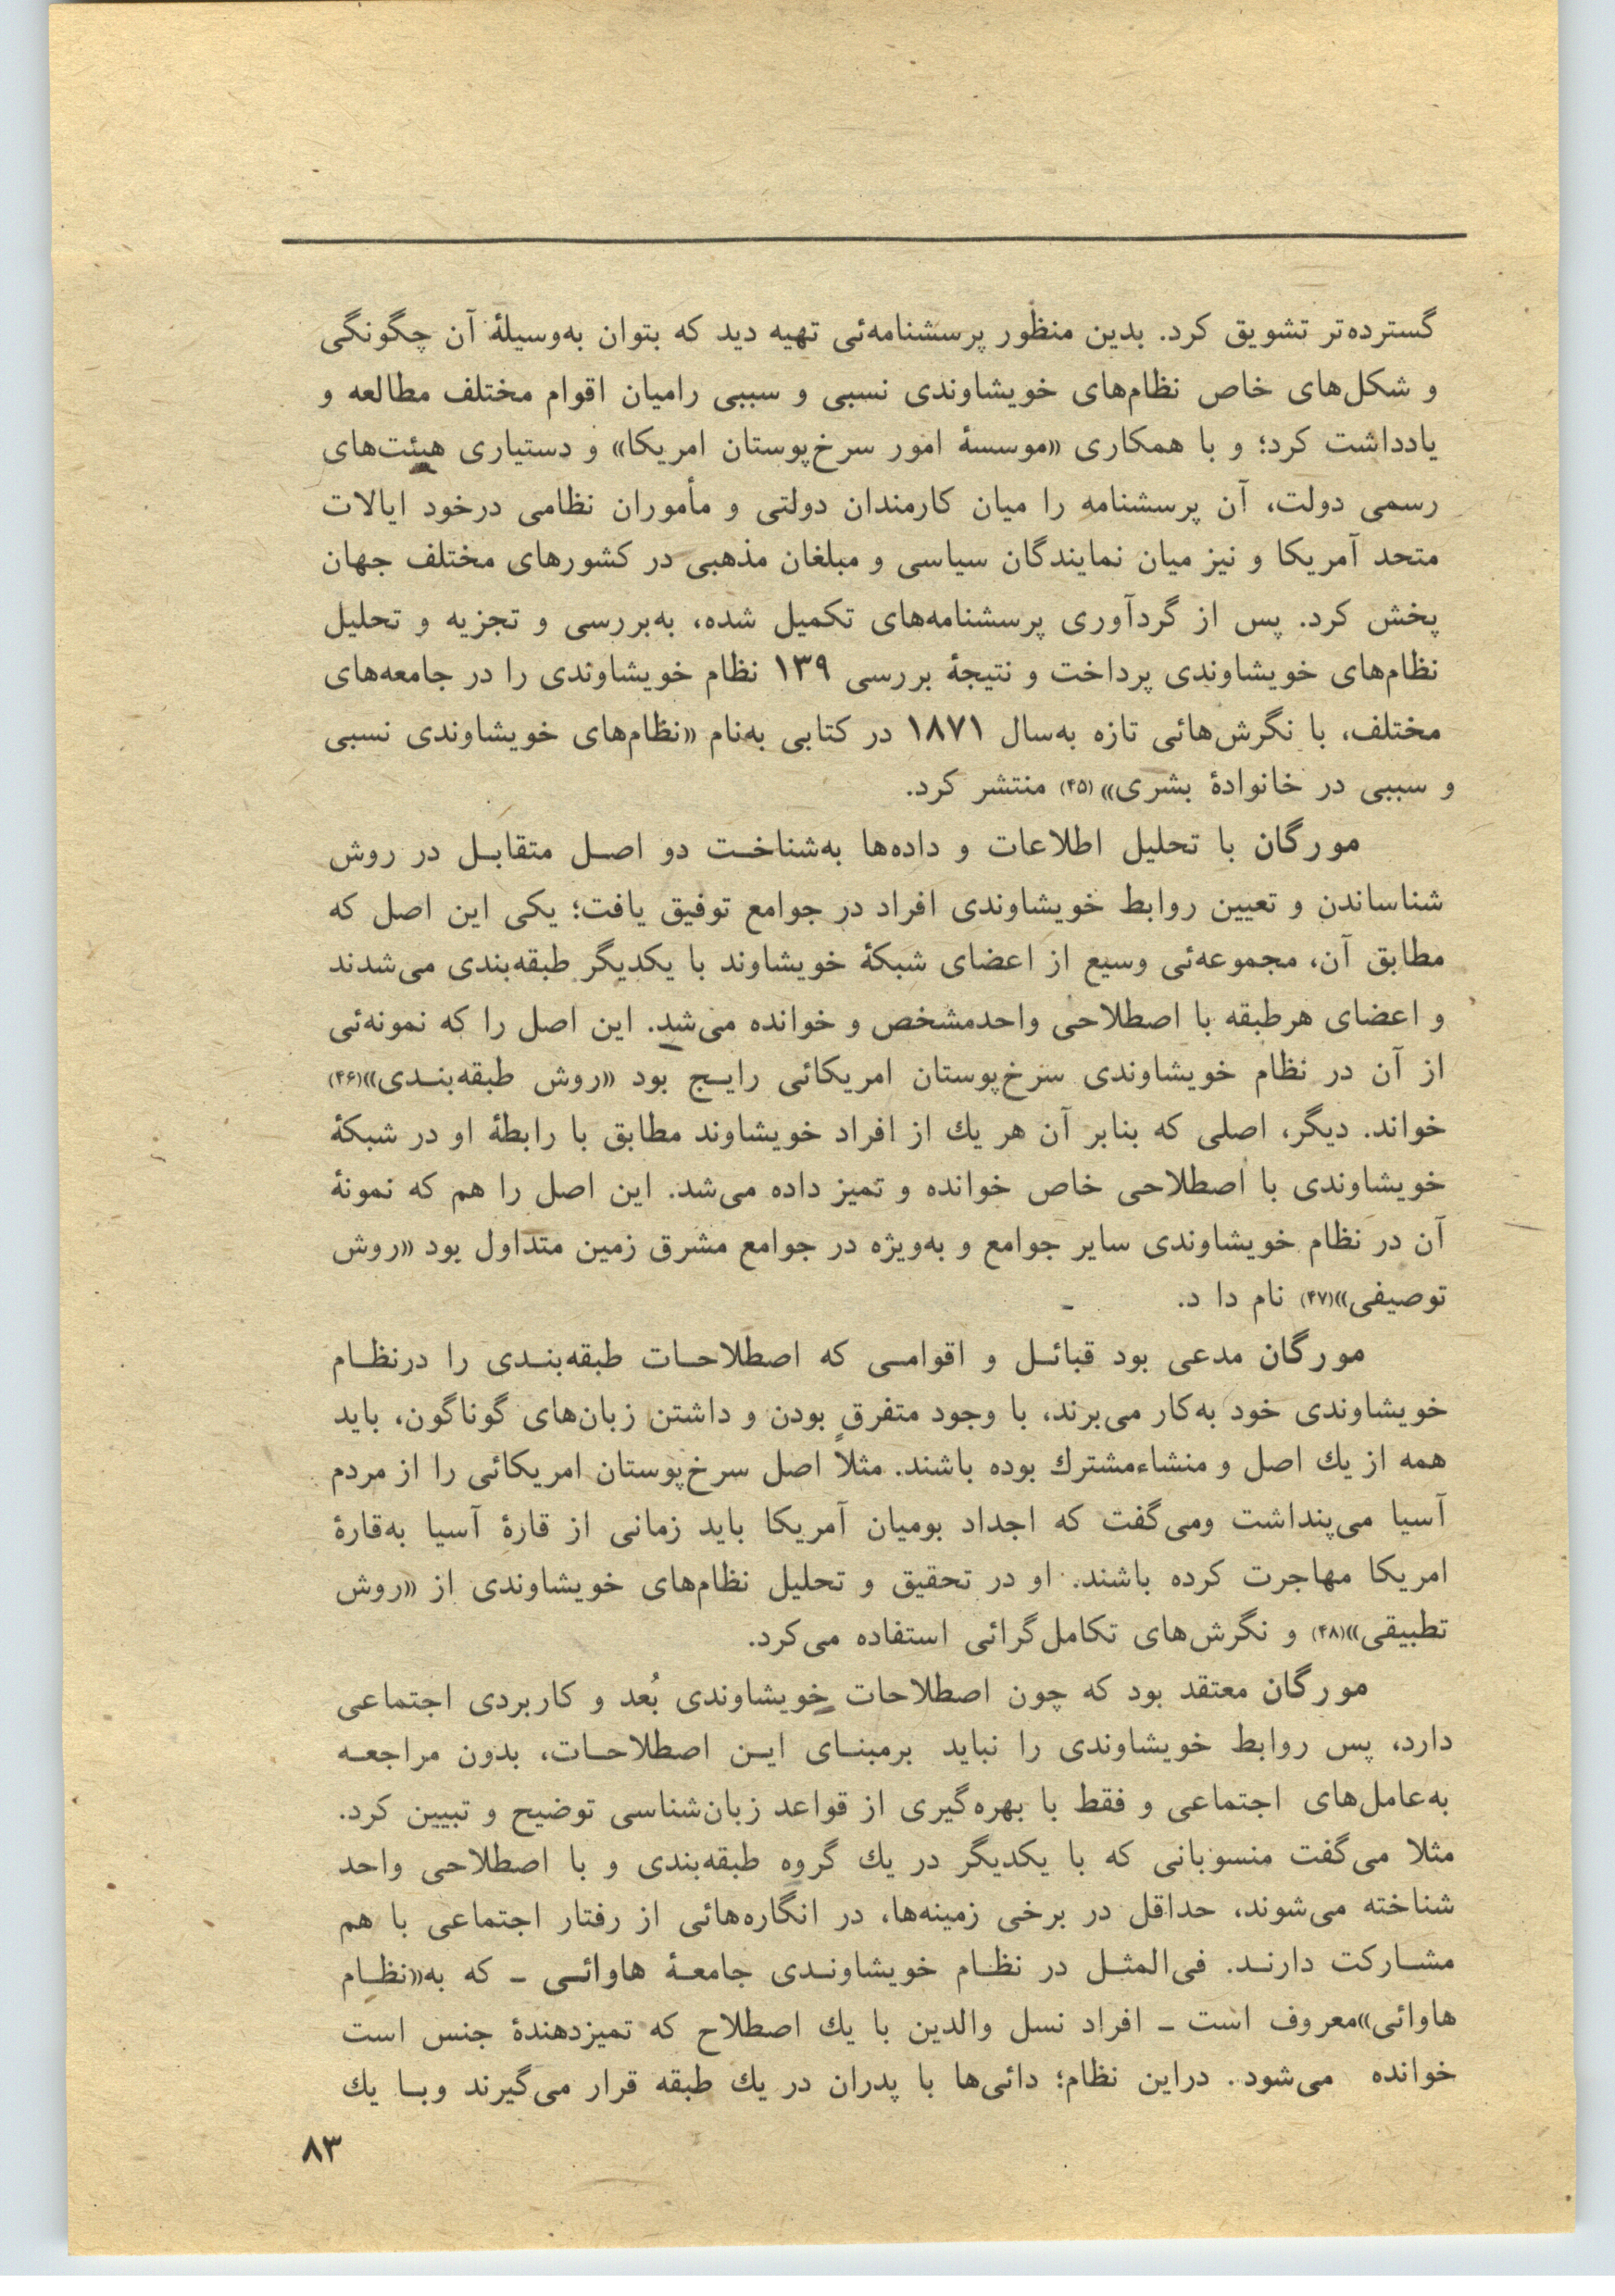 گسترده‌تر تشویق کرد. بدین منظور پرسشنامه‌ئی تهیه دید که بتوان به‌وسیلهٔ آن چگونگی
و شکل‌های خاص نظام‌های خویشاوندی نسبی و سببی رامیان اقوام مختلف مطالعه و
یادداشت کرد؛ و با همکاری «موسسهٔ امور سرخ‌پوستان امریکا» و دستیاری هیئت‌های
رسمی دولت، آن پرسشنامه را میان کارمندان دولتی و مأموران نظامی درخود ایالات
متحد آمریکا و نیز میان نمایندگان سیاسی و مبلغان مذهبی در کشورهای مختلف جهان
پخش کرد. پس از گردآوری پرسشنامه‌های تکمیل شده، به‌بررسی و تجزیه و تحلیل
نظام‌های خویشاوندی پرداخت و نتیجهٔ بررسی ۱۳۹ نظام خویشاوندی را در جامعه‌های
مختلف، با نگرش‌هائی تازه به‌سال ۱۸۷۱ در کتابی به‌نام «نظام‌های خویشاوندی نسبی
و سببی در خانوادهٔ بشری» (۴۵) منتشر کرد.
مورگان با تحلیل اطلاعات و داده‌ها به‌شناخـت دو اصـل متقابـل در روش
شناساندن و تعیین روابط خویشاوندی افراد در جوامع توفیق یافت؛ یکی این اصل که
مطابق آن، مجموعه‌ئی وسیع از اعضای شبکهٔ خویشاوند با یکدیگر طبقه‌بندی می‌شدند
و اعضای هرطبقه با اصطلاحی واحدمشخص و خوانده می‌شد. این اصل را که نمونه‌ئی
از آن در نظام خویشاوندی سرخ‌پوستان امریکائی رایـج بود «روش طبقه‌بنـدی»(۴۶)
خواند. دیگر، اصلی که بنابر آن هر یك از افراد خویشاوند مطابق با رابطهٔ او در شبکهٔ
خویشاوندی با اصطلاحی خاص خوانده و تمیز داده می‌شد. این اصل را هم که نمونهٔ
آن در نظام خویشاوندی سایر جوامع و به‌ویژه در جوامع مشرق زمین متداول بود «روش
توصیفی»(۴۷) نام دا د.
مورگان مدعی بود قبائـل و اقوامـی که اصطلاحـات طبقه‌بنـدی را درنظـام
خویشاوندی خود به‌کار می‌برند، با وجود متفرق بودن و داشتن زبان‌های گوناگون، باید
همه از یك اصل و منشاءمشترك بوده باشند. مثلاً اصل سرخ‌پوستان امریکائی را از مردم
آسیا می‌پنداشت ومی‌گفت که اجداد بومیان آمریکا باید زمانی از قارهٔ آسیا به‌قارهٔ
امریکا مهاجرت کرده باشند. او در تحقیق و تحلیل نظام‌های خویشاوندی از «روش
تطبیقی»(۴۸) و نگرش‌های تکامل‌گرائی استفاده می‌کرد.
مورگان معتقد بود که چون اصطلاحات خویشاوندی بُعد و کاربردی اجتماعی
دارد، پس روابط خویشاوندی را نباید برمبنـای ایـن اصطلاحـات، بدون مراجعـه
به‌عامل‌های اجتماعی و فقط با بهره‌گیری از قواعد زبان‌شناسی توضیح و تبیین کرد.
مثلا می‌گفت منسوبانی که با یکدیگر در یك گروه طبقه‌بندی و با اصطلاحی واحد
شناخته می‌شوند، حداقل در برخی زمینه‌ها، در انگاره‌هائی از رفتار اجتماعی با هم
مشـارکت دارنـد. فی‌المثـل در نظـام خویشاونـدی جامعـهٔ هاوائـی ـ که به«نظـام
هاوائی»معروف است ـ افراد نسل والدین با یك اصطلاح که تمیزدهندهٔ جنس است
خوانده می‌شود. دراین نظام؛ دائی‌ها با پدران در یك طبقه قرار می‌گیرند وبـا یك
۸۳